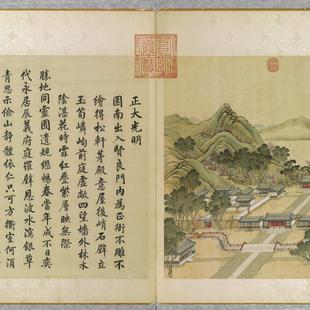 正大光明
園南出入賢良門內為正衙不雕不
繪得松軒茅殿意屋後峭石壁立
玉筍嶙峋前庭虛敞四望牆外林木
陰湛花時霏紅疊紫層映無際
勝地同靈囿遺規繼暢春當年成不日奕
代永居辰義府庭羅壁恩波水瀉銀草
青思示儉山靜體依仁只可方衢室何須